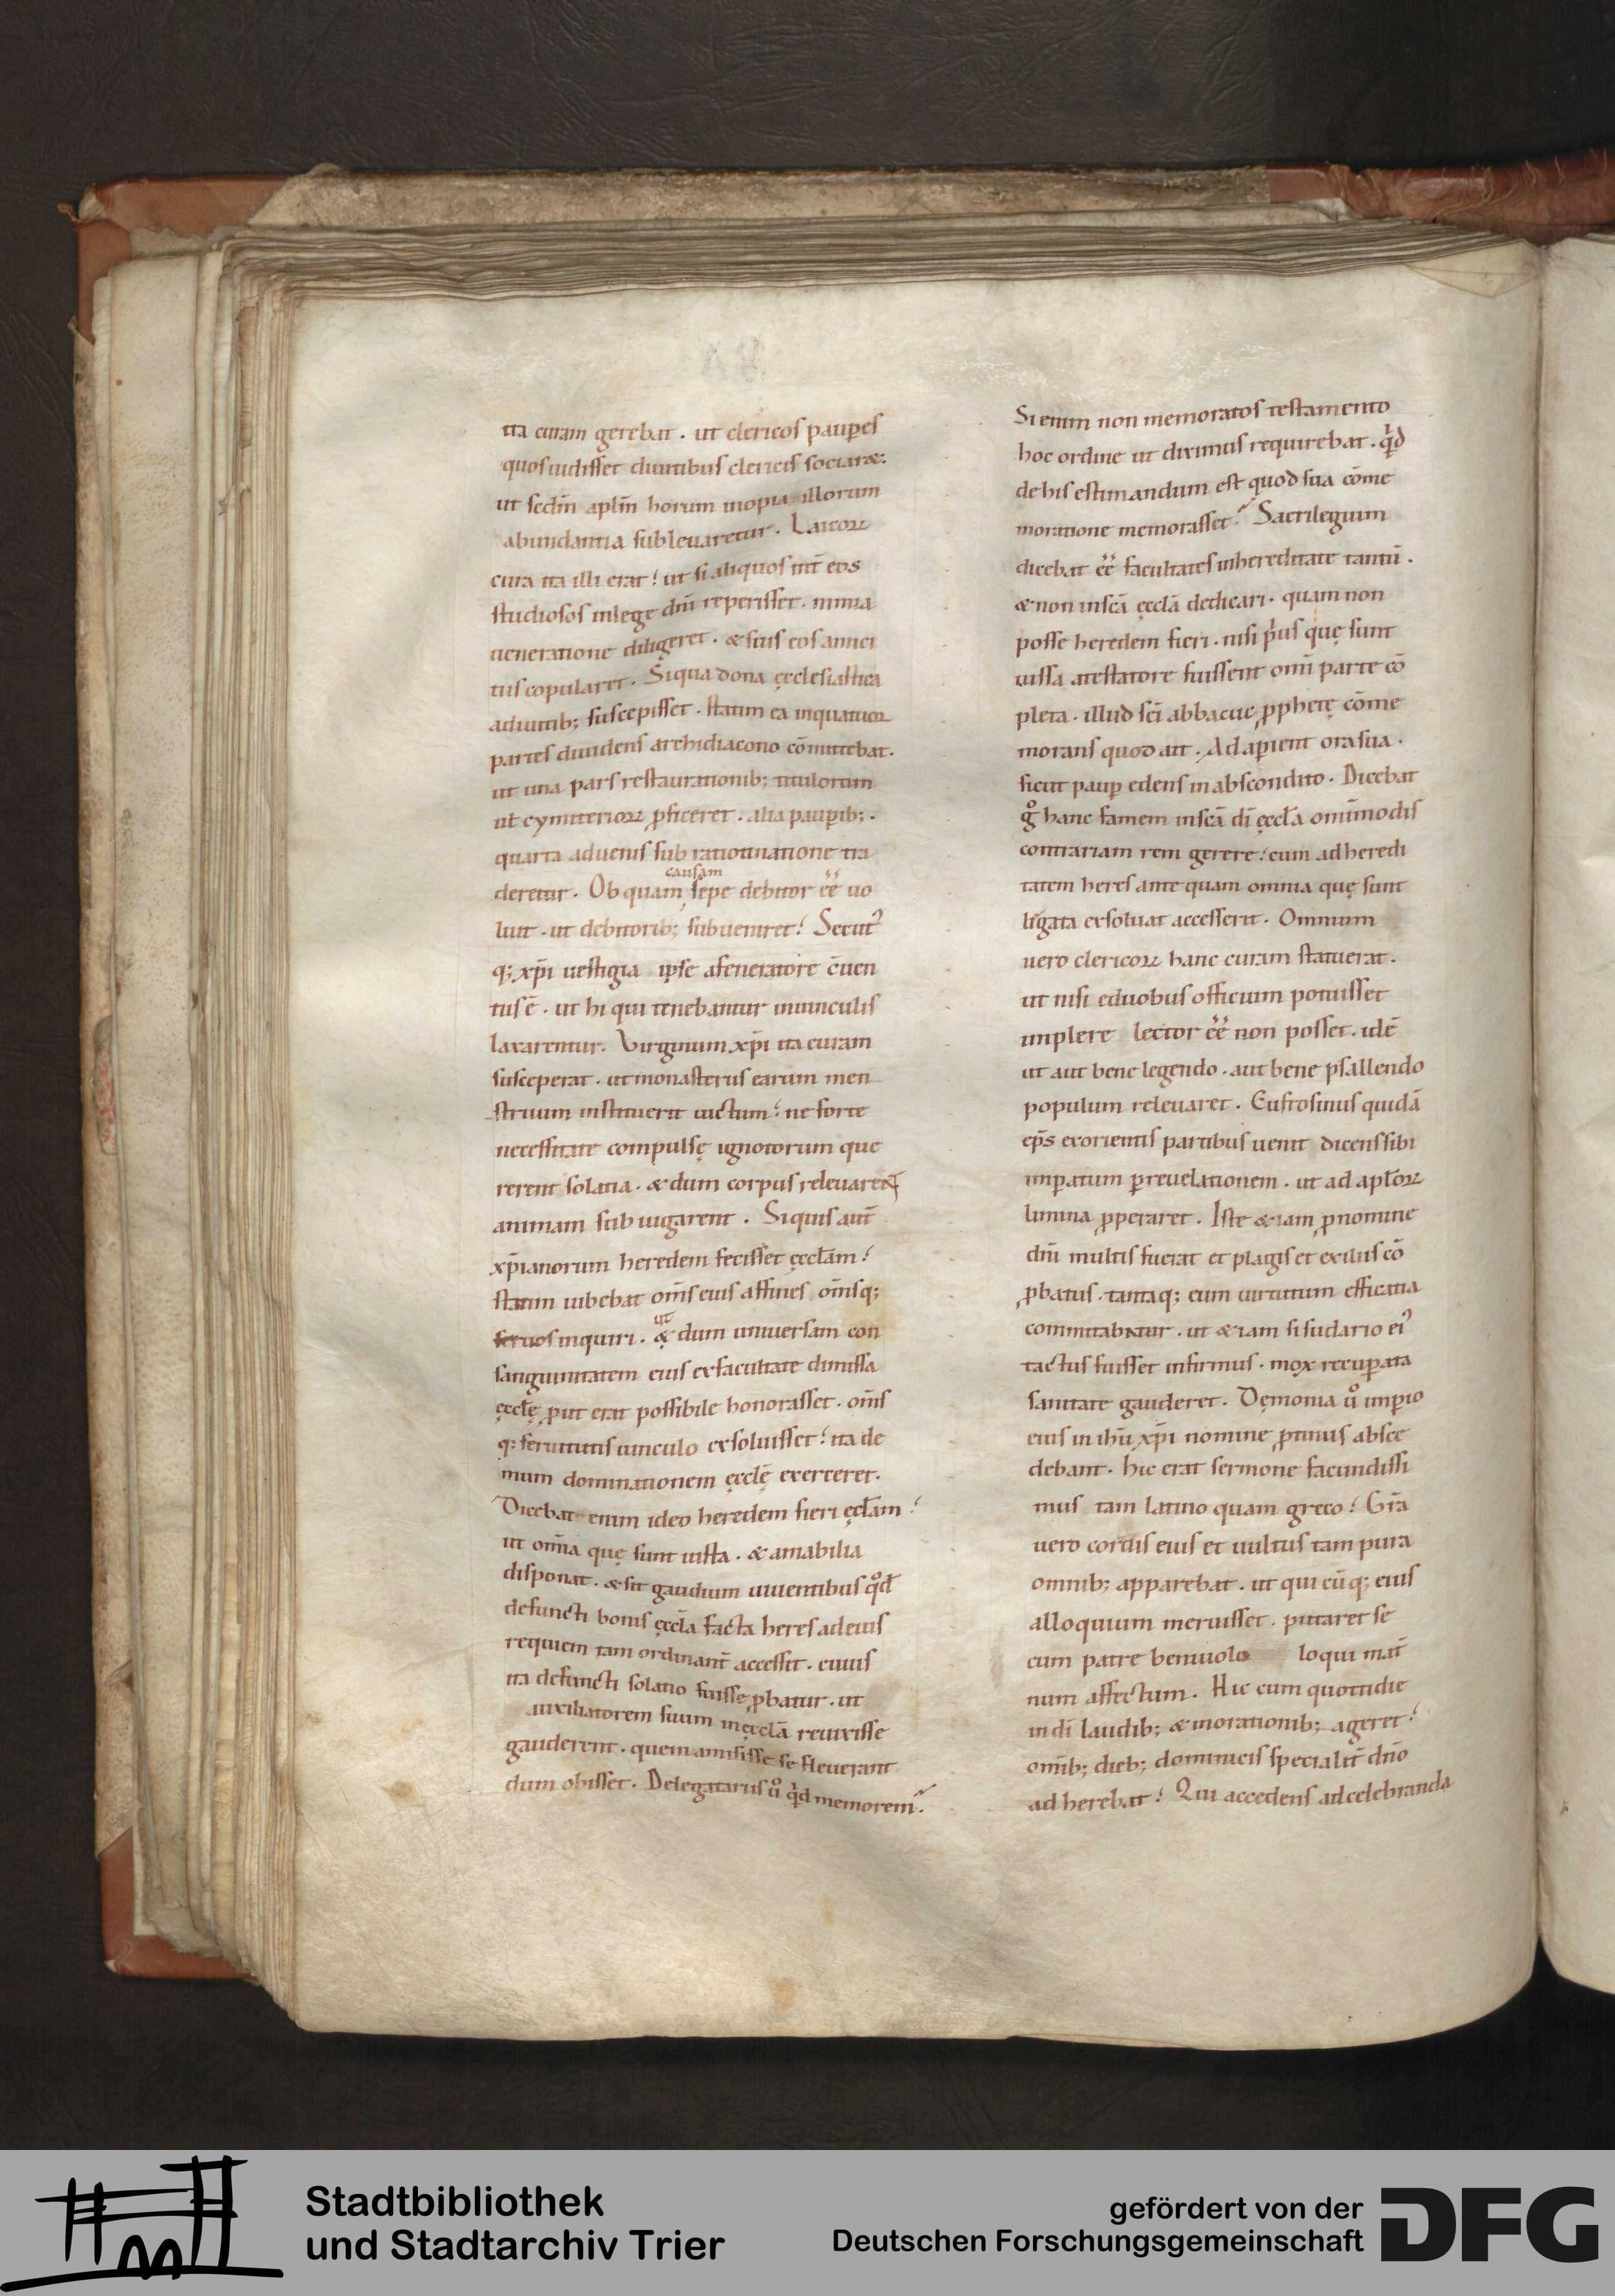 ita curam gerebat . ut clericos paup̲es
quos uidisset diuitibus clericis sociaret.
ut sectm̄ aplm̄ horum inopia illorum
abundantia subleuaretur . Laicoꝝ
cura ita illi erat ! ut si aliquos int̄ eos
studiosos in lege dnī reperisset . nimia
ueneratione diligeret . & suis eos amici
tiis copularet . Siqua dona ęcclesiastica
a diuitib; suscepisset . statim ea in quatuor
partes diuidens archidiacono cōmittebat .
ut una pars restaurationib; titulorum
ut̄ cymiterioꝝ ꝓficeret . alia paup̲ib; .
quarta aduenis sub ratiotinatione tra
deretur . Ob quam causam sepe debitor eē uo
luit . ut debitorib; subueniret ! Secut᾿
q; xp̄i uestigia ipse a feneratore c̄uen
tus ē . ut hi qui tenebantur in uinculis
laxarentur . Virginum xp̄i ita curam
susceperat . ut monasteriis earum men
struum institueret uictum ! ne forte
necessitate compulsę ignotorum que
rerent solatia . & dum corpus releuarent
animam sub iugarent . Si quis aut̄
xp̄ianorum heredem fecisset ęcclām !
statim iubebat om̄s eius affines om̄sq;
seruos inquiri . & ut dum uniuersam con
sanguinitatem eius ex facultate dimissa
ęcclę ꝓut erat possibile honorasset . om̄s
q; seruitutis uinculo exsoluisset ! ita de
mum dominationem ęcclę̄ exerceret .
Dicebat enim ideo heredem fieri ęcl̄am !
ut om̄ia quę sunt iusta . & amabilia
disponat . & sit gaudium uiuentibus qd̄
defuncti bonis ęccl̄a facta heres ad eius
requiem tam ordinant̄ accessit . cuius
ita defuncti solatio fuisse ꝓbatur . ut
auxiliatorem suum in ęcclā reuixisse
gauderent . quem amisisse se fleuerant
dum obisset . Delegatarius ů qḋ memorem !
Si enim non memoratos testamento
hoc ordine ut diximus requirebat . qḋ
de his estimandum est quod sua cōme
moratione memorasset ! Sacrilegium
dicebat eē facultates in hereditate tantū .
& non in scā ęcclā dedicari . quam non
posse heredem fieri . nisi pⁱus quę sunt
iussa a testatore fuissent omī parte cō
pleta . illud scī abbacuc ꝓphetę cōme
morans quod ait . Ad ap̲ient ora sua .
sicut paup̲ edens in abscondito . Dicebat
g̊ hanc famem in scā dī ęccl̄a omīmodis
contrariam rem gerere ! cum ad heredi
tatem heres ante quam omnia quę sunt
ligata exsoluat accesserit . Omnium
uero clericoꝝ hanc curam statuerat .
ut nisi e duobus officium potuisset
implere lector eē non posset . idē
ut aut bene legendo . aut bene psallendo
populum releuaret . Eufrosinus quidā
ep̄s ex orientis partibus uenit dicens sibi
imp̲atum p̲ reuelationem . ut ad apl̄oꝝ
limina ꝓperaret . Iste & iam ꝓ nomine
dnī multis fuerat et plagis et exiliis cō
ꝓbatus . tantaq; eum uirtutum efficatia
comitabatur . ut & iam si sudario ei᾿
tactus fuisset infirmus . mox recup̲ata
sanitate gauderet . Dęmonia ů imp̲io
eius in ihū xp̄i nomine ꝓtinus absce
debant . hic erat sermone facundissi
mus tam latino quam greco ! Grā
uero cordis eius et uultus tam pura
omnib; apparebat . ut qui cūq; eius
alloquium meruisset . putaret se
cum patre beniuolo loqui mat̄
num affectum . Hic cum quottidie
in dī laudib; & in orationib; ageret !
omīb; dieb; dominicis specialit̄ dn̄o
ad herebat ! Qui accedens ad celebranda
Stadtbibliothek
und Stadtarchiv Trier
gefördert von der
Deutschen Forschungsgemeinschaft
DFG